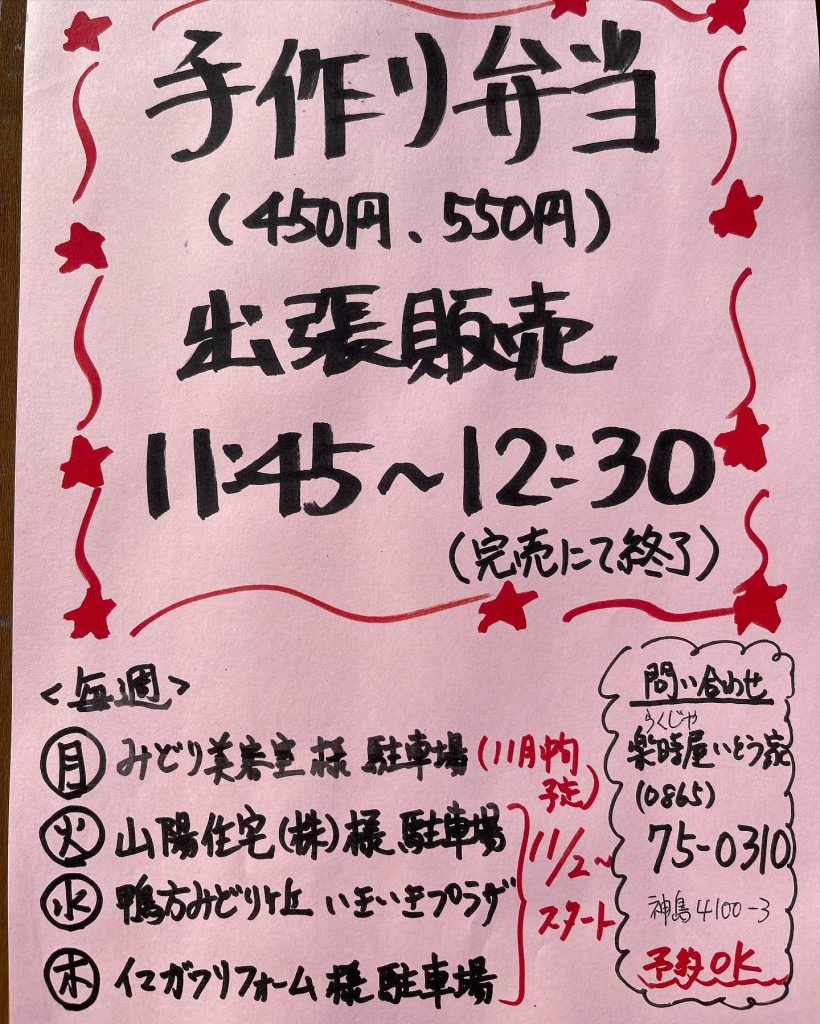 手作り弁当
(450円、550円)
出張販売
11:45~12:30
(完売にて終了)
<毎週>
月 みどり美容室様 駐車場 (11月中旬予定)
火 山陽住宅(株)様 駐車場
水 鴨方みどりヶ丘 いきいきプラザ
木 イマガワリフォーム様 駐車場
11/2~
スタート
問い合わせ
らくじや
楽時屋いとう家
(0865)
75-0310
神島4100-3
予約OK